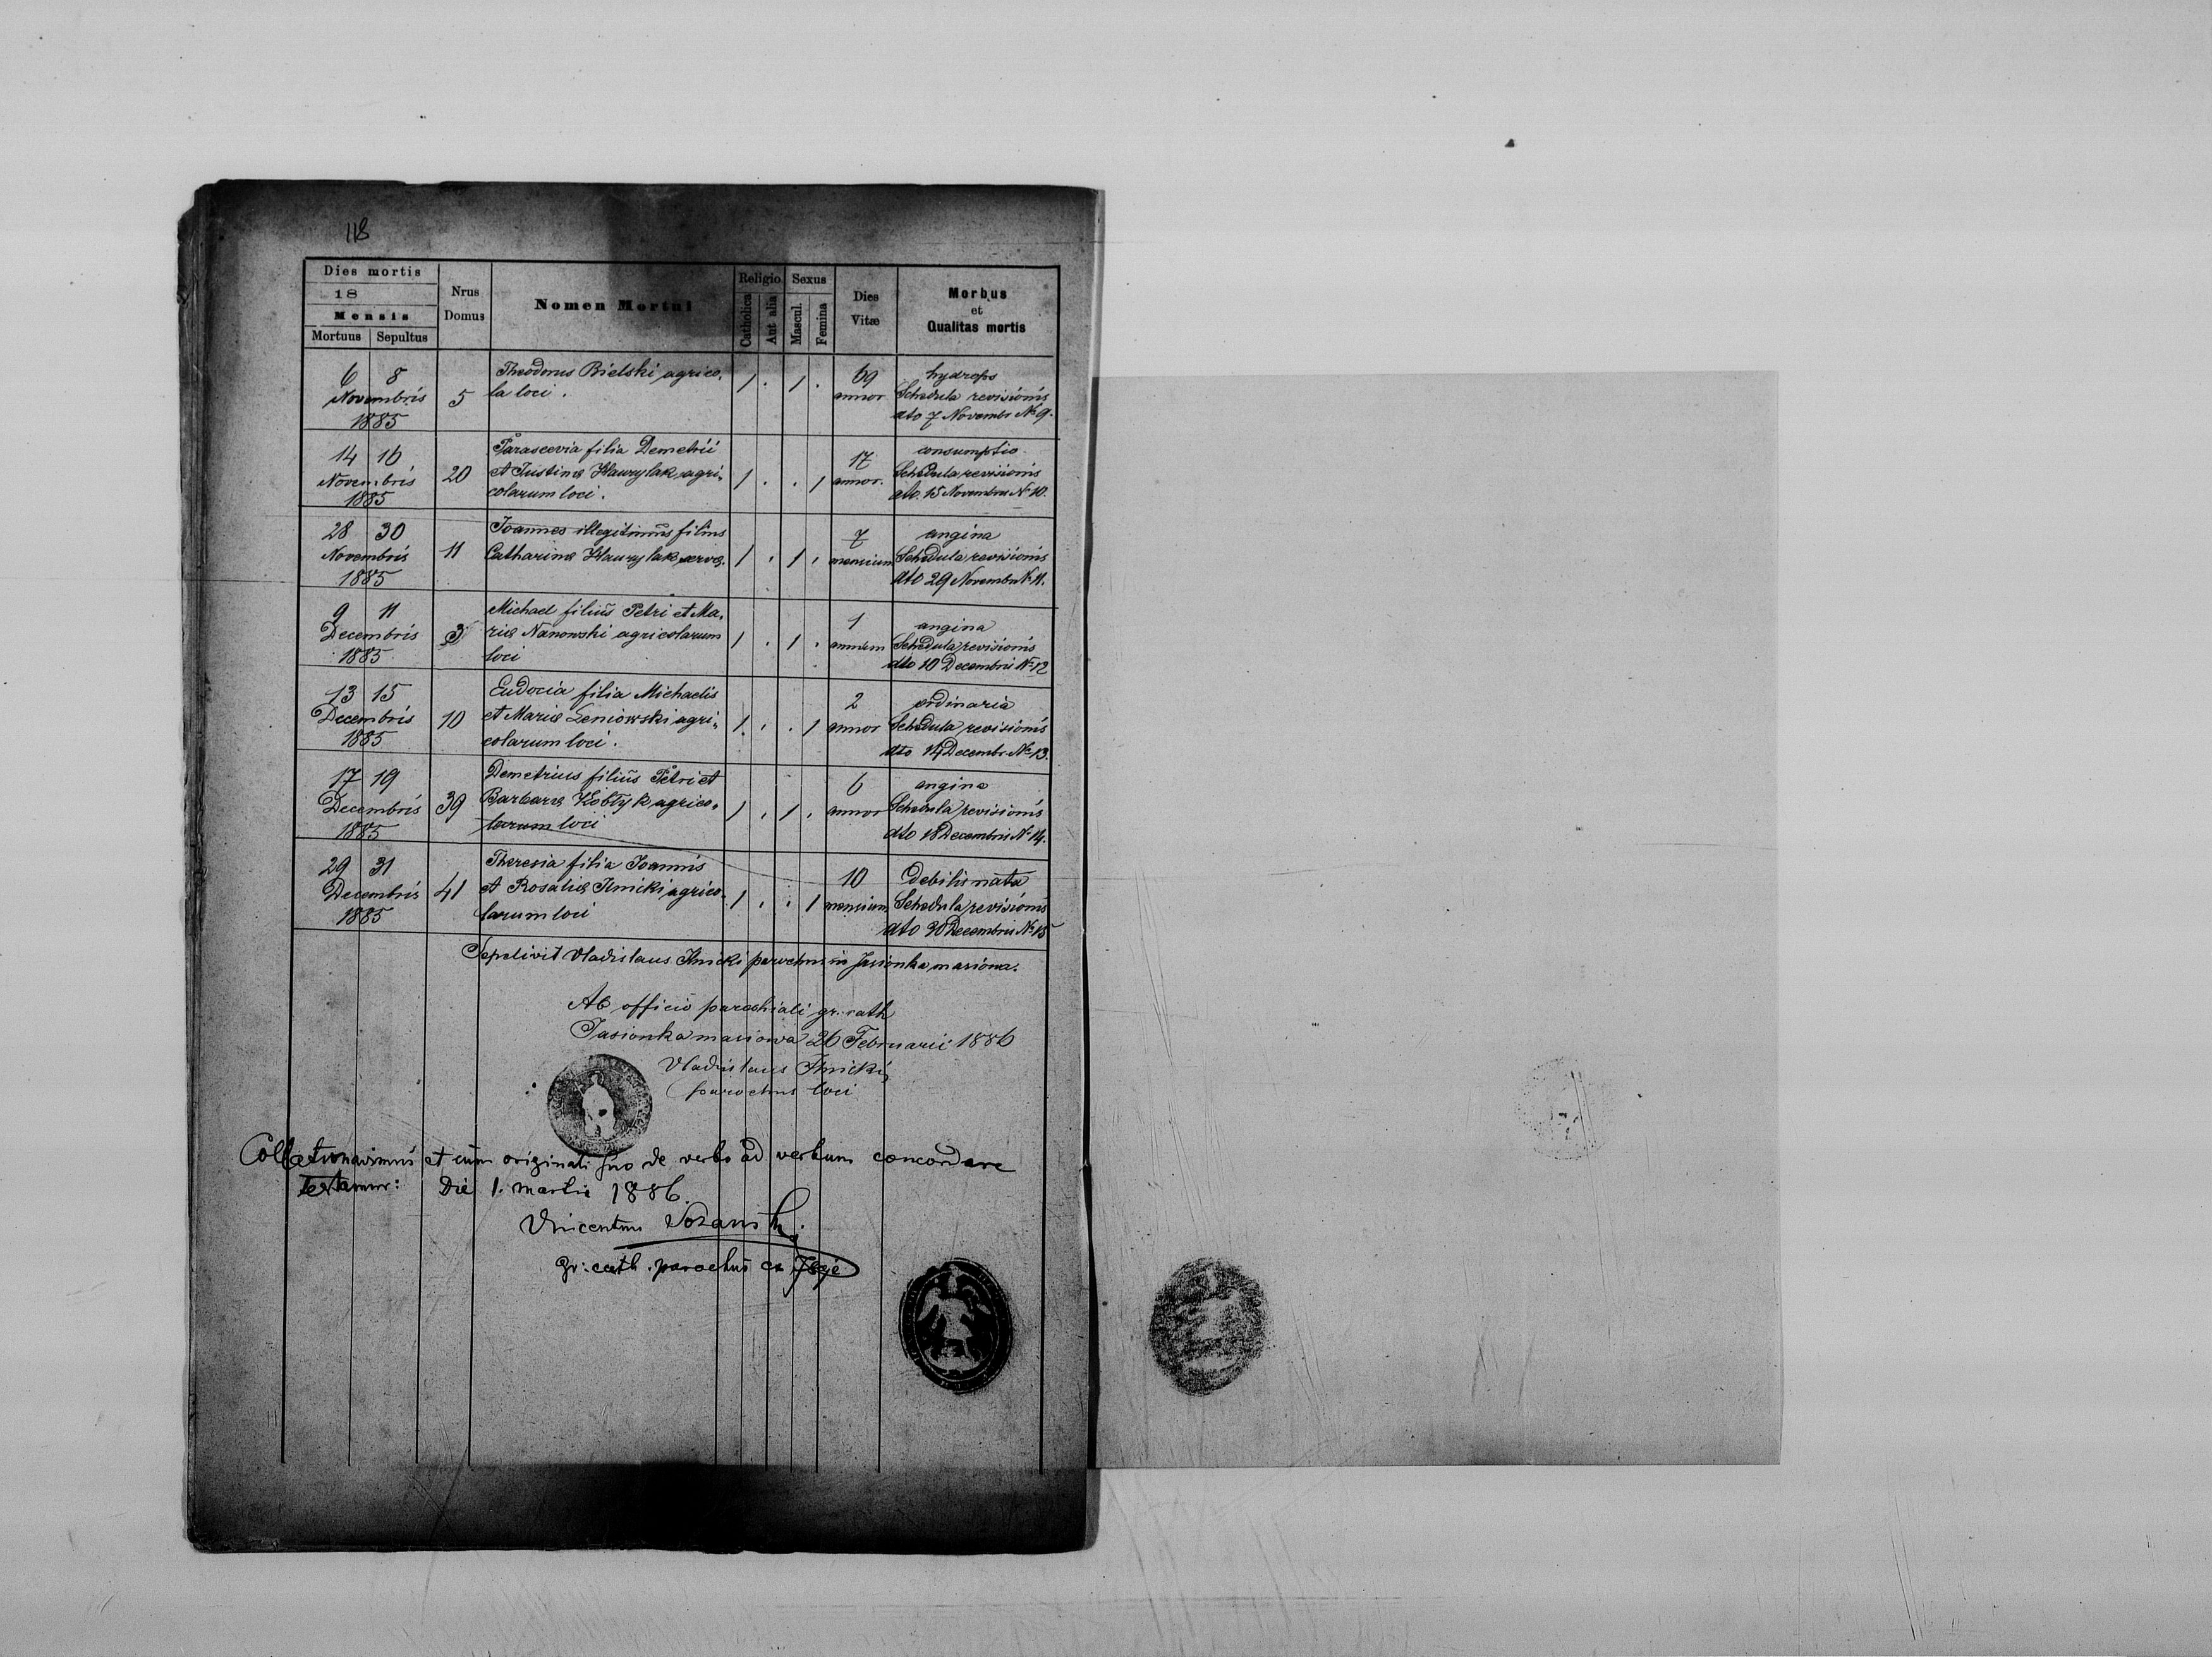 118
Dies mortis
18
Mensis
Mortuus Sepultus
Nrus Domus
Nomen Mortui
Religio
Catholica
Aut alia
Sexus
Mascul.
Femina
Dies Vitæ
Morbus et Qualitas mortis
6 8 Theodorus Bielski agrico- 1 . 1 . 69 hydrops
Novembris 5 la loci. annor Schedula revisionis
1885 dto 7 Novembr № 9.
14 16 Parascevia filia Demetrii 17 consumptio
Novembris 20 et Justinæ Hawrylak agri- 1 . . 1 annor. Schedula revisionis
1885 colarum loci. dto. 15 Novembris № 10.
28 30 Joannes illegitimus filius 7 angina
Novembris 11 Catharinæ Hawrylak servæ. 1 . 1 . mensium Schedula revisionis
1885 dto 29 Novembr № 11.
9 11 Michael filius Petri et Ma- 1 angina
Decembris 3 riæ Nanowski agricolarum 1 . 1 . Schedula revisionis
1885 loci dto 10 Decembris № 12
13 15 Eudocia filia Michaelis 2 ordinaria
Decembris 10 et Mariæ Leniowski agri- 1 . . 1 annor Schedula revisionis
1885 colarum loci. dto 14 Decembr. № 13.
17 19 Demetrius filius Petri et 6 angina
Decembris 39 Barbaræ agrico- 1 . 1 . annor Schedula revisionis
1885 larum loci dto 18 Decembris № 14.
29 31 Theresia filia Joannis 10 debilis nata
Decembris 41 et Rosaliæ Ilnicki agrico- 1 . . 1 mensium Schedula revisionis
1885 larum loci dto 30 Decembris № 15
Sepelivit Vladislaus Ilnicki parochus in Jasionka masiowa.
Ab officio parochiali gr. cath
Jasionka masiowa 26 Februarii 1886
Vladislaus Ilnicki
parochus loci
Collationavimus et cum originali suo de verbo ad verbum concordare
testamur: Die 1. martii 1886.
Vincentius
gr: cath. parochus